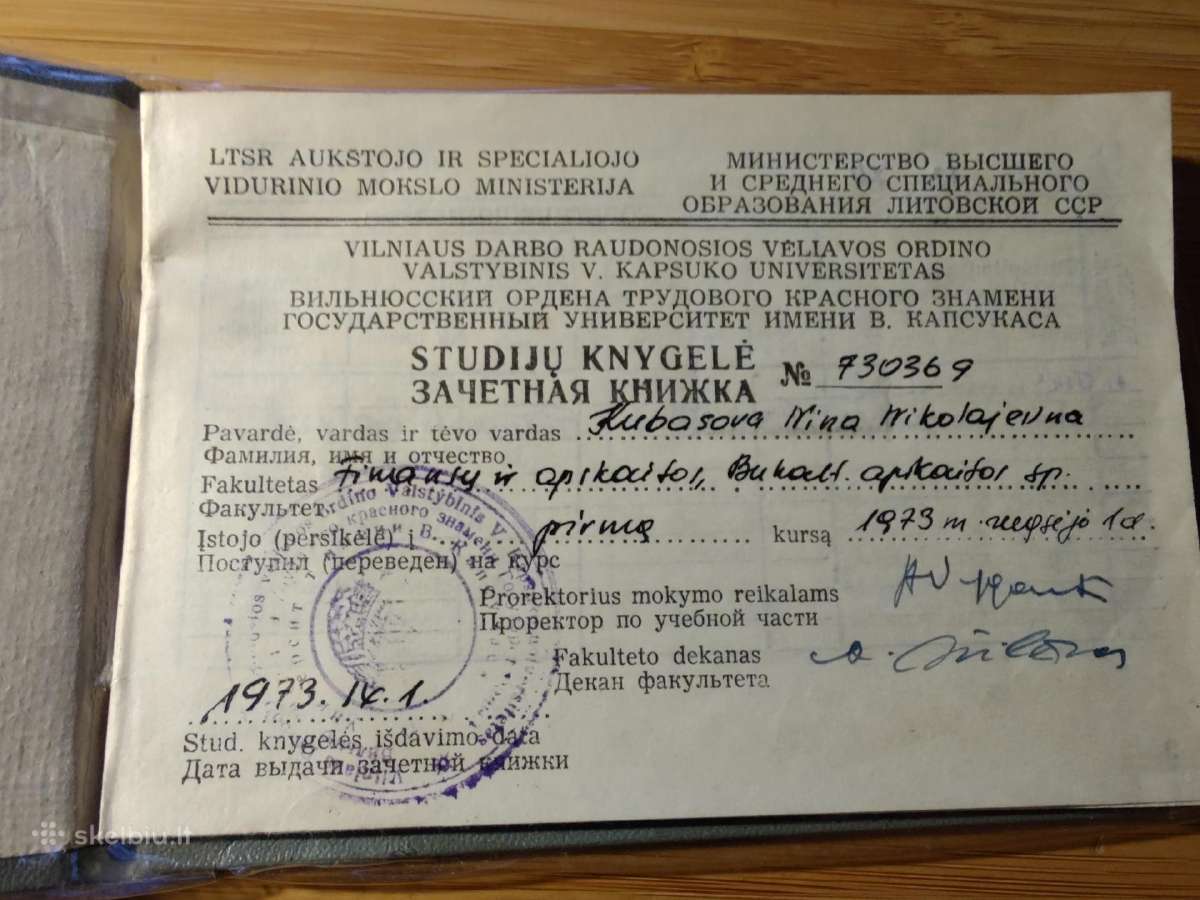 LTSR AUKŠTOJO IR SPECIALIOJO
VIDURINIO MOKSLO MINISTERIJA
МИНИСТЕРСТВО ВЫСШЕГО
И СРЕДНЕГО СПЕЦИАЛЬНОГО
ОБРАЗОВАНИЯ ЛИТОВСКОЙ ССР
VILNIAUS DARBO RAUDONOSIOS VĖLIAVOS ORDINO
VALSTYBINIS V. KAPSUKO UNIVERSITETAS
ВИЛЬНЮССКИЙ ОРДЕНА ТРУДОВОГО КРАСНОГО ЗНАМЕНИ
ГОСУДАРСТВЕННЫЙ УНИВЕРСИТЕТ ИМЕНИ В. КАПСУКАСА
STUDIJŲ KNYGELĖ
ЗАЧЕТНАЯ КНИЖКА № 730369
Pavardė, vardas ir tėvo vardas Kubasova Nina Nikolajevna
Фамилия, имя и отчество
Fakultetas Finansų ir apskaitos, Buhalt. apskaitos sp.
Факультет
Įstojo (persikėlė) į pirmą kursą 1973 m. rugsėjo 1 d.
Поступил (переведен) на курс
Prorektorius mokymo reikalams
Проректор по учебной части
Fakulteto dekanas
Декан факультета
1973.IX.1.
Stud. knygelės išdavimo data
Дата выдачи зачетной книжки
skelbiu.lt